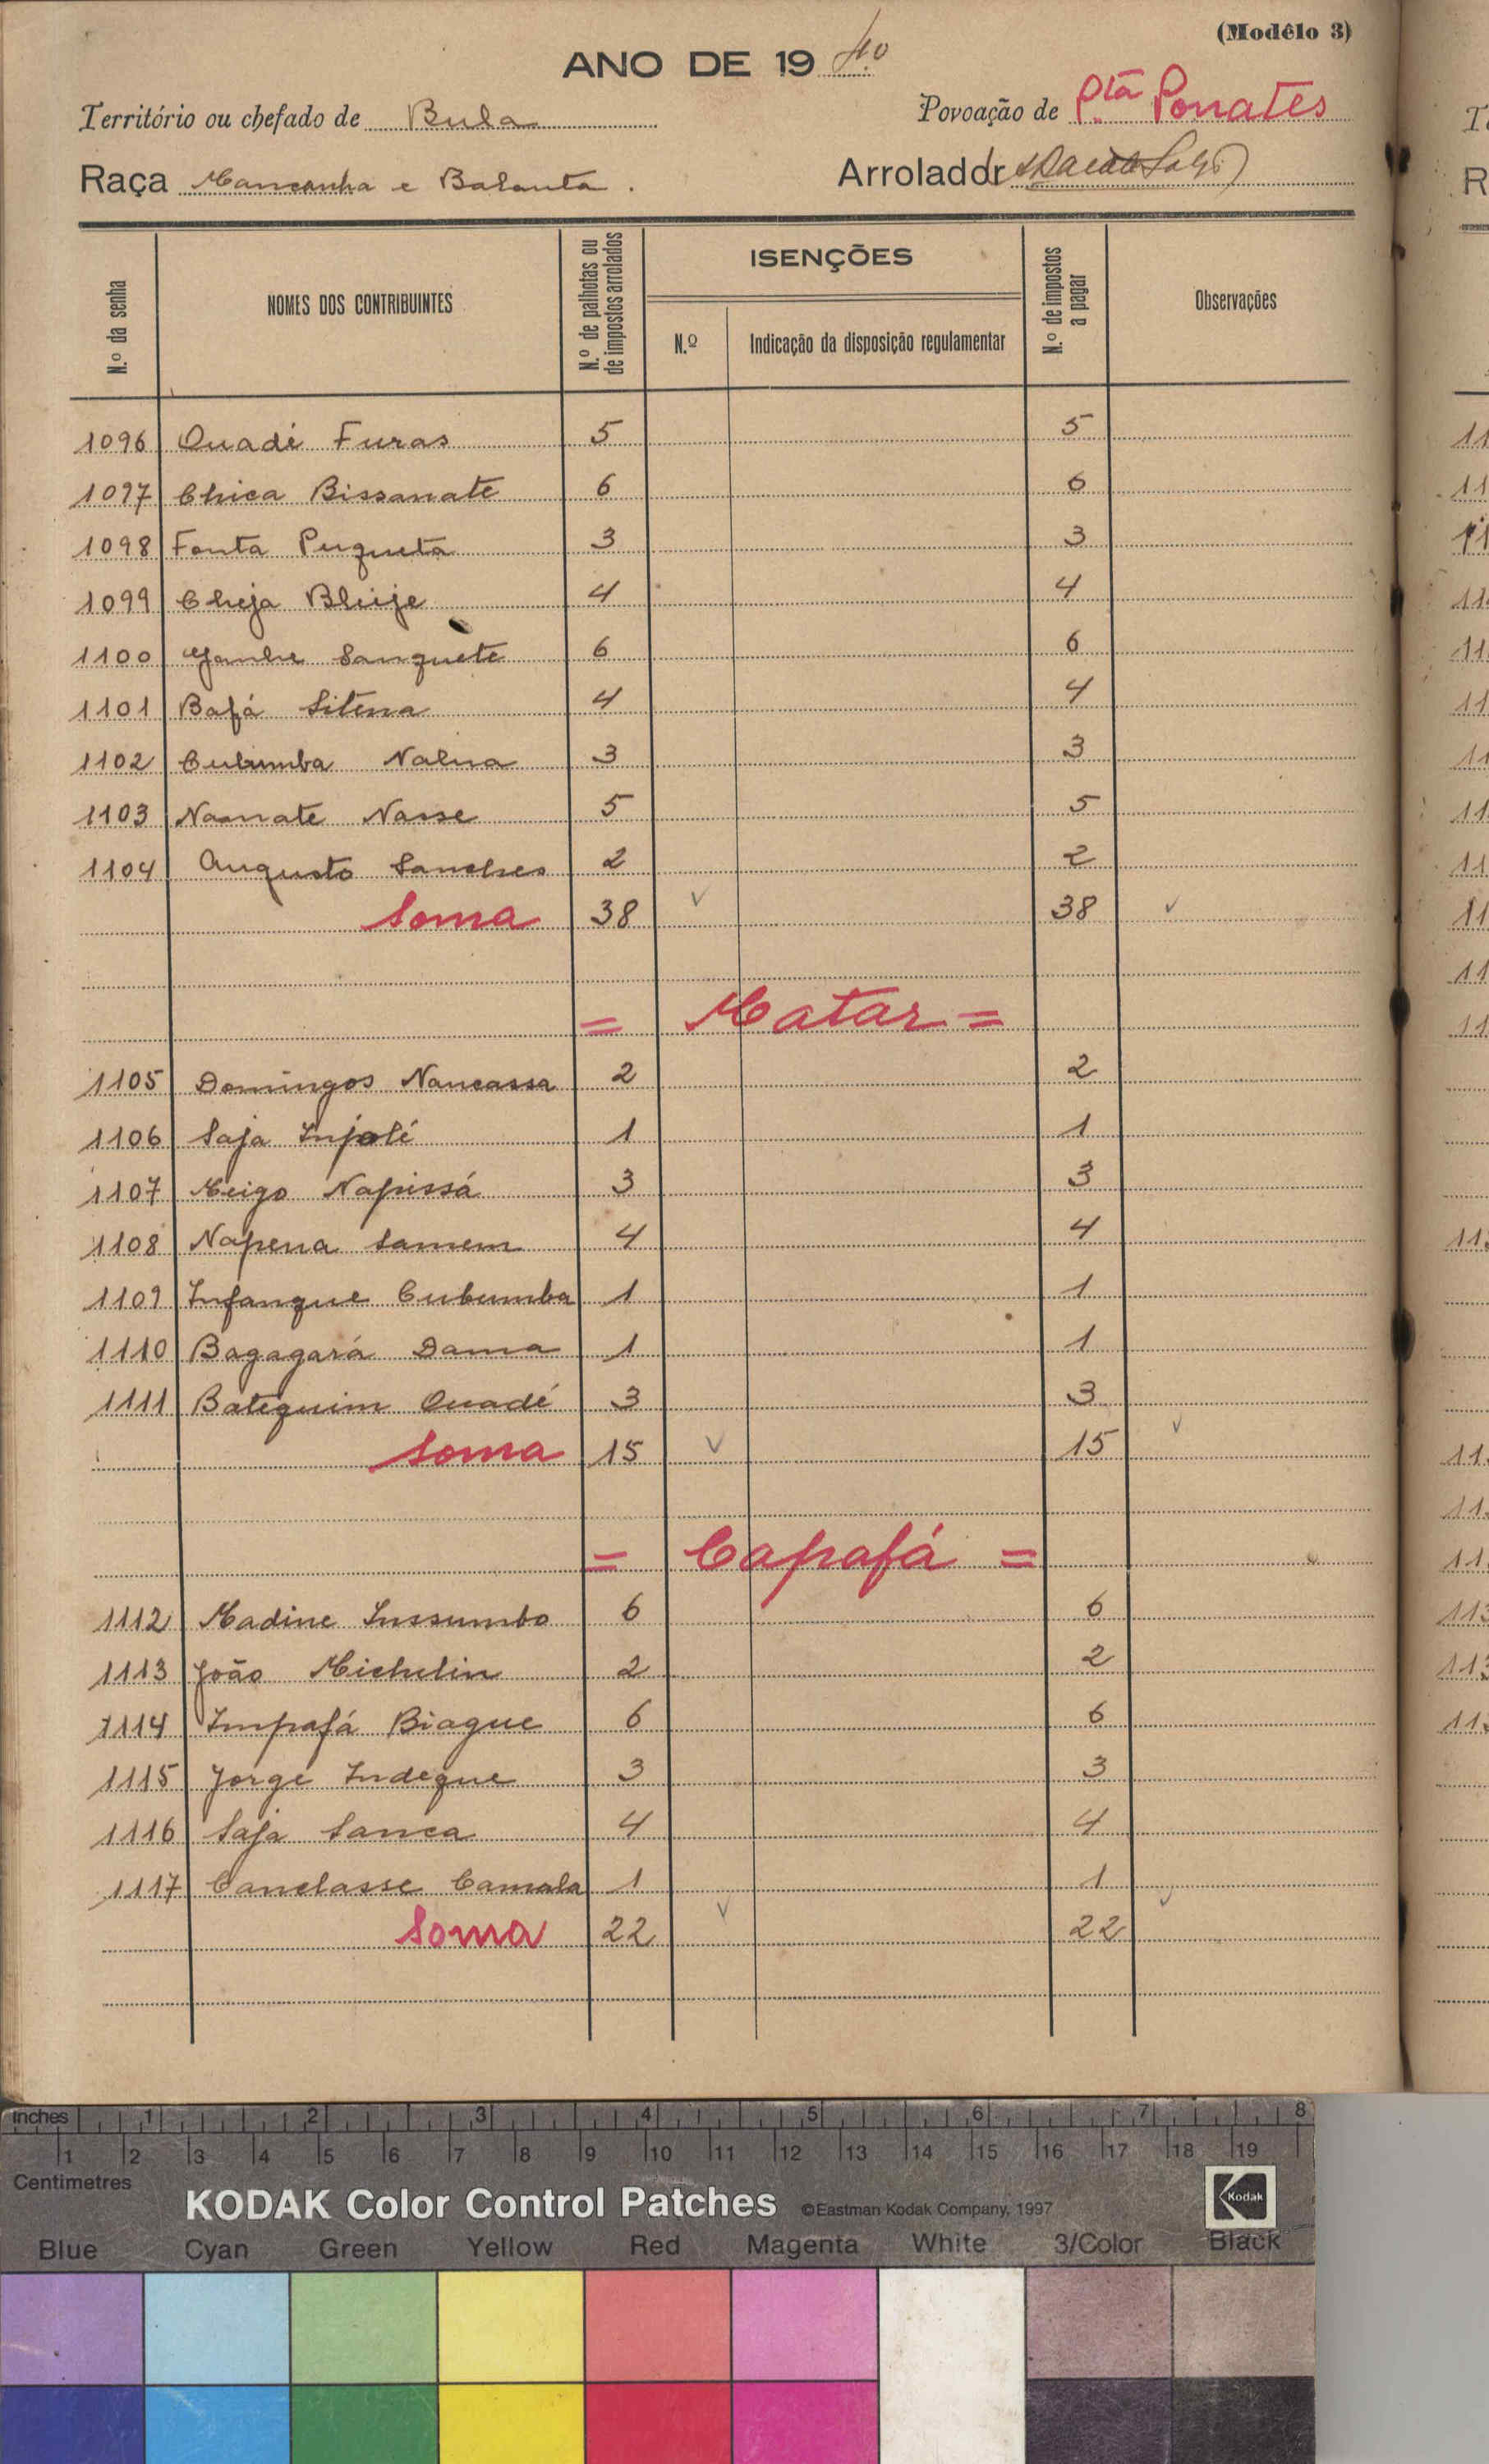 (Modêlo 3)
ANO DE 19 40
Território ou chefado de Bula
Povoação de P.ta Ponates
Raça Mancanha e Balanta.
Arrolador
N.º da senha
NOMES DOS CONTRIBUINTES
N.º de palhotas ou de impostos arrolados
ISENÇÕES
N.º
Indicação da disposição regulamentar
N.º de impostos a pagar
Observações
1096 Ouadé Furas 5 5
1097 Chica Bissanate 6 6
1098 Fonta Perqueta 3 3
1099 Cheja Bleije 4 4
1100 Sanquete 6 6
1101 Bafá Sitena 4 4
1102 Cubumba Nalna 3 3
1103 Naanate Nasse 5 5
1104 Augusto Sanches 2 2
Soma 38 38
= Matar =
1105 Domingos Nancassa 2 2
1106 Saja Injolé 1 1
1107 Meigo Napissá 3 3
1108 Napena Samem 4 4
1109 Infanque Cubumba 1 1
1110 Bagagará Dama 1 1
1111 Batequim Ouadé 3 3
Soma 15 15
= Capafá =
1112 Madine Inssumbo 6 6
1113 João Michelin 2 2
1114 Impafá Biague 6 6
1115 Jorge Indeque 3 3
1116 Saja Sanca 4 4
1117 Canclasse Camala 1 1
Soma 22 22
inches 1 2 3 4 5 6 7 8
1 2 3 4 5 6 7 8 9 10 11 12 13 14 15 16 17 18 19
Centimetres
KODAK Color Control Patches ©Eastman Kodak Company, 1997
Kodak
Blue Cyan Green Yellow Red Magenta White 3/Color Black